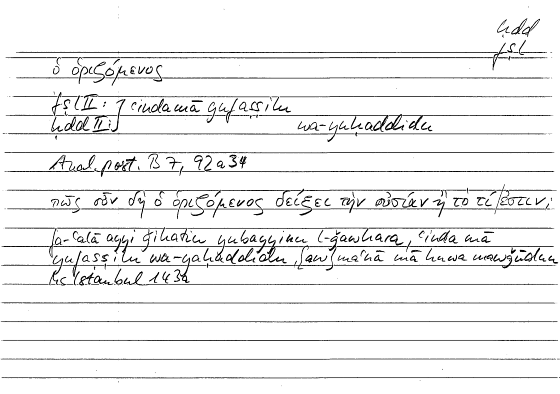 ḥdd
fṣl
ὁ ὁριζόμενος
fṣl II : } ʿinda mā yufaṣṣilu
ḥdd II : } wa-yuḥaddidu
Anal. post. B 7, 92 a 34
πῶς οὖν δὴ ὁ ὁριζόμενος δείξει τὴν οὐσίαν ἢ τὸ τί ἐστιν;
fa-ʿalā ayyi ǧihatin yubayyinu l-ǧawhara, ʿinda mā
yufaṣṣilu wa-yaḥaddidu, [aw] maʿnā mā huwa mawǧūdun
Ms Istanbul 143a